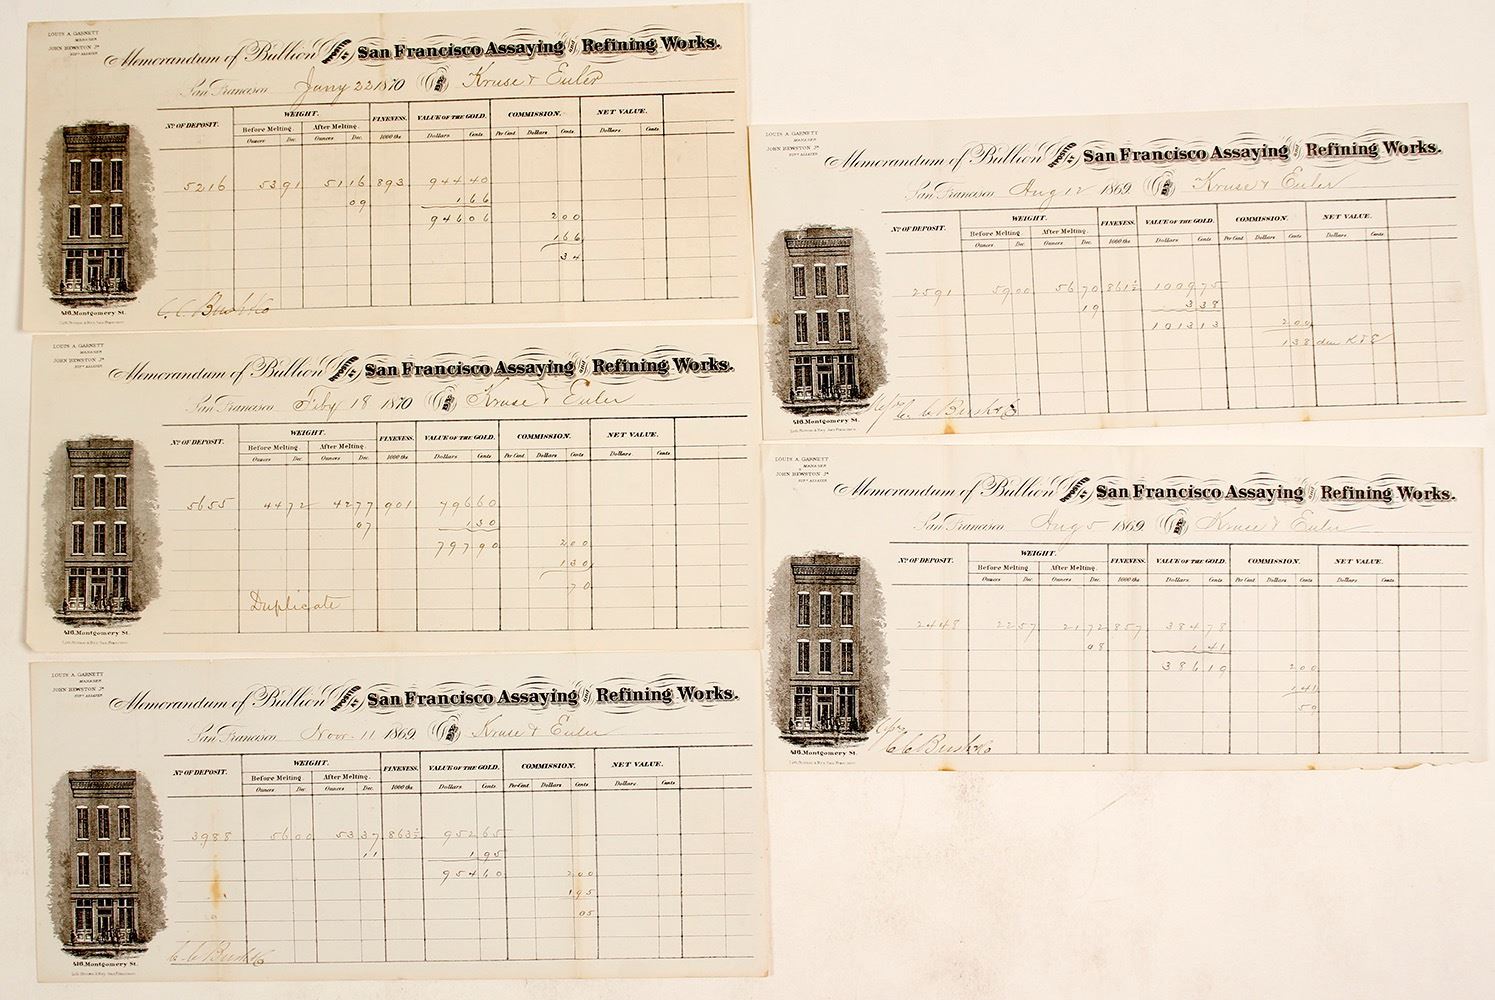 LOUIS A. GARNETT
MANAGER
JOHN HEWSTON Jr.
SUPT ASSAYER
Memorandum of Bullion Deposited at San Francisco Assaying and Refining Works.
San Francisco Jany 22 1870 By Kruse & Euler
No. OF DEPOSIT. WEIGHT. FINENESS. VALUE OF THE GOLD. COMMISSION. NET VALUE.
Before Melting. After Melting.
Ounces Dec. Ounces Dec. 1000 ths Dollars Cents Per Cent. Dollars Cents Dollars Cents
5216 53.91 51.16 893 944 40
09 1 66
946 06 2 00
1 66
34
C. C. Bush & Co
416. Montgomery St.
LOUIS A. GARNETT
MANAGER
JOHN HEWSTON Jr.
SUPT ASSAYER
Memorandum of Bullion Deposited at San Francisco Assaying and Refining Works.
San Francisco Feby 18 1870 By Kruse & Euler
No. OF DEPOSIT. WEIGHT. FINENESS. VALUE OF THE GOLD. COMMISSION. NET VALUE.
Before Melting. After Melting.
Ounces Dec. Ounces Dec. 1000 ths Dollars Cents Per Cent. Dollars Cents Dollars Cents
5655 44 72 42 77 901 796 60
07 1 30
797 90 2 00
1 30
70
Duplicate
416. Montgomery St.
LOUIS A. GARNETT
MANAGER
JOHN HEWSTON Jr.
SUPT ASSAYER
Memorandum of Bullion Deposited at San Francisco Assaying and Refining Works.
San Francisco Novr. 11 1869 By Kruse & Euler
No. OF DEPOSIT. WEIGHT. FINENESS. VALUE OF THE GOLD. COMMISSION. NET VALUE.
Before Melting. After Melting.
Ounces Dec. Ounces Dec. 1000 ths Dollars Cents Per Cent. Dollars Cents Dollars Cents
3988 56 00 53 37 863½ 952 65
11 1 95
954 60 2 00
1 95
05
C C Bush & Co
416. Montgomery St.
LOUIS A. GARNETT
MANAGER
JOHN HEWSTON Jr.
SUPT ASSAYER
Memorandum of Bullion Deposited at San Francisco Assaying and Refining Works.
San Francisco Aug 12 1869. By Kruse & Euler
No. OF DEPOSIT. WEIGHT. FINENESS. VALUE OF THE GOLD. COMMISSION. NET VALUE.
Before Melting. After Melting.
Ounces Dec. Ounces Dec. 1000 ths Dollars Cents Per Cent. Dollars Cents Dollars Cents
2591 59 00 56 70 861½ 1009 75
19 3 38
1013 13 2 00
1 38 due K & E
C C Bush & Co
416. Montgomery St.
LOUIS A. GARNETT
MANAGER
JOHN HEWSTON Jr.
SUPT ASSAYER
Memorandum of Bullion Deposited at San Francisco Assaying and Refining Works.
San Francisco Aug 5 1869. By Kruse & Euler
No. OF DEPOSIT. WEIGHT. FINENESS. VALUE OF THE GOLD. COMMISSION. NET VALUE.
Before Melting. After Melting.
Ounces Dec. Ounces Dec. 1000 ths Dollars Cents Per Cent. Dollars Cents Dollars Cents
2448 22 57 21 72 857 384 78
08 1 41
386 19 2 00
1 41
59
C C Bush & Co
416. Montgomery St.